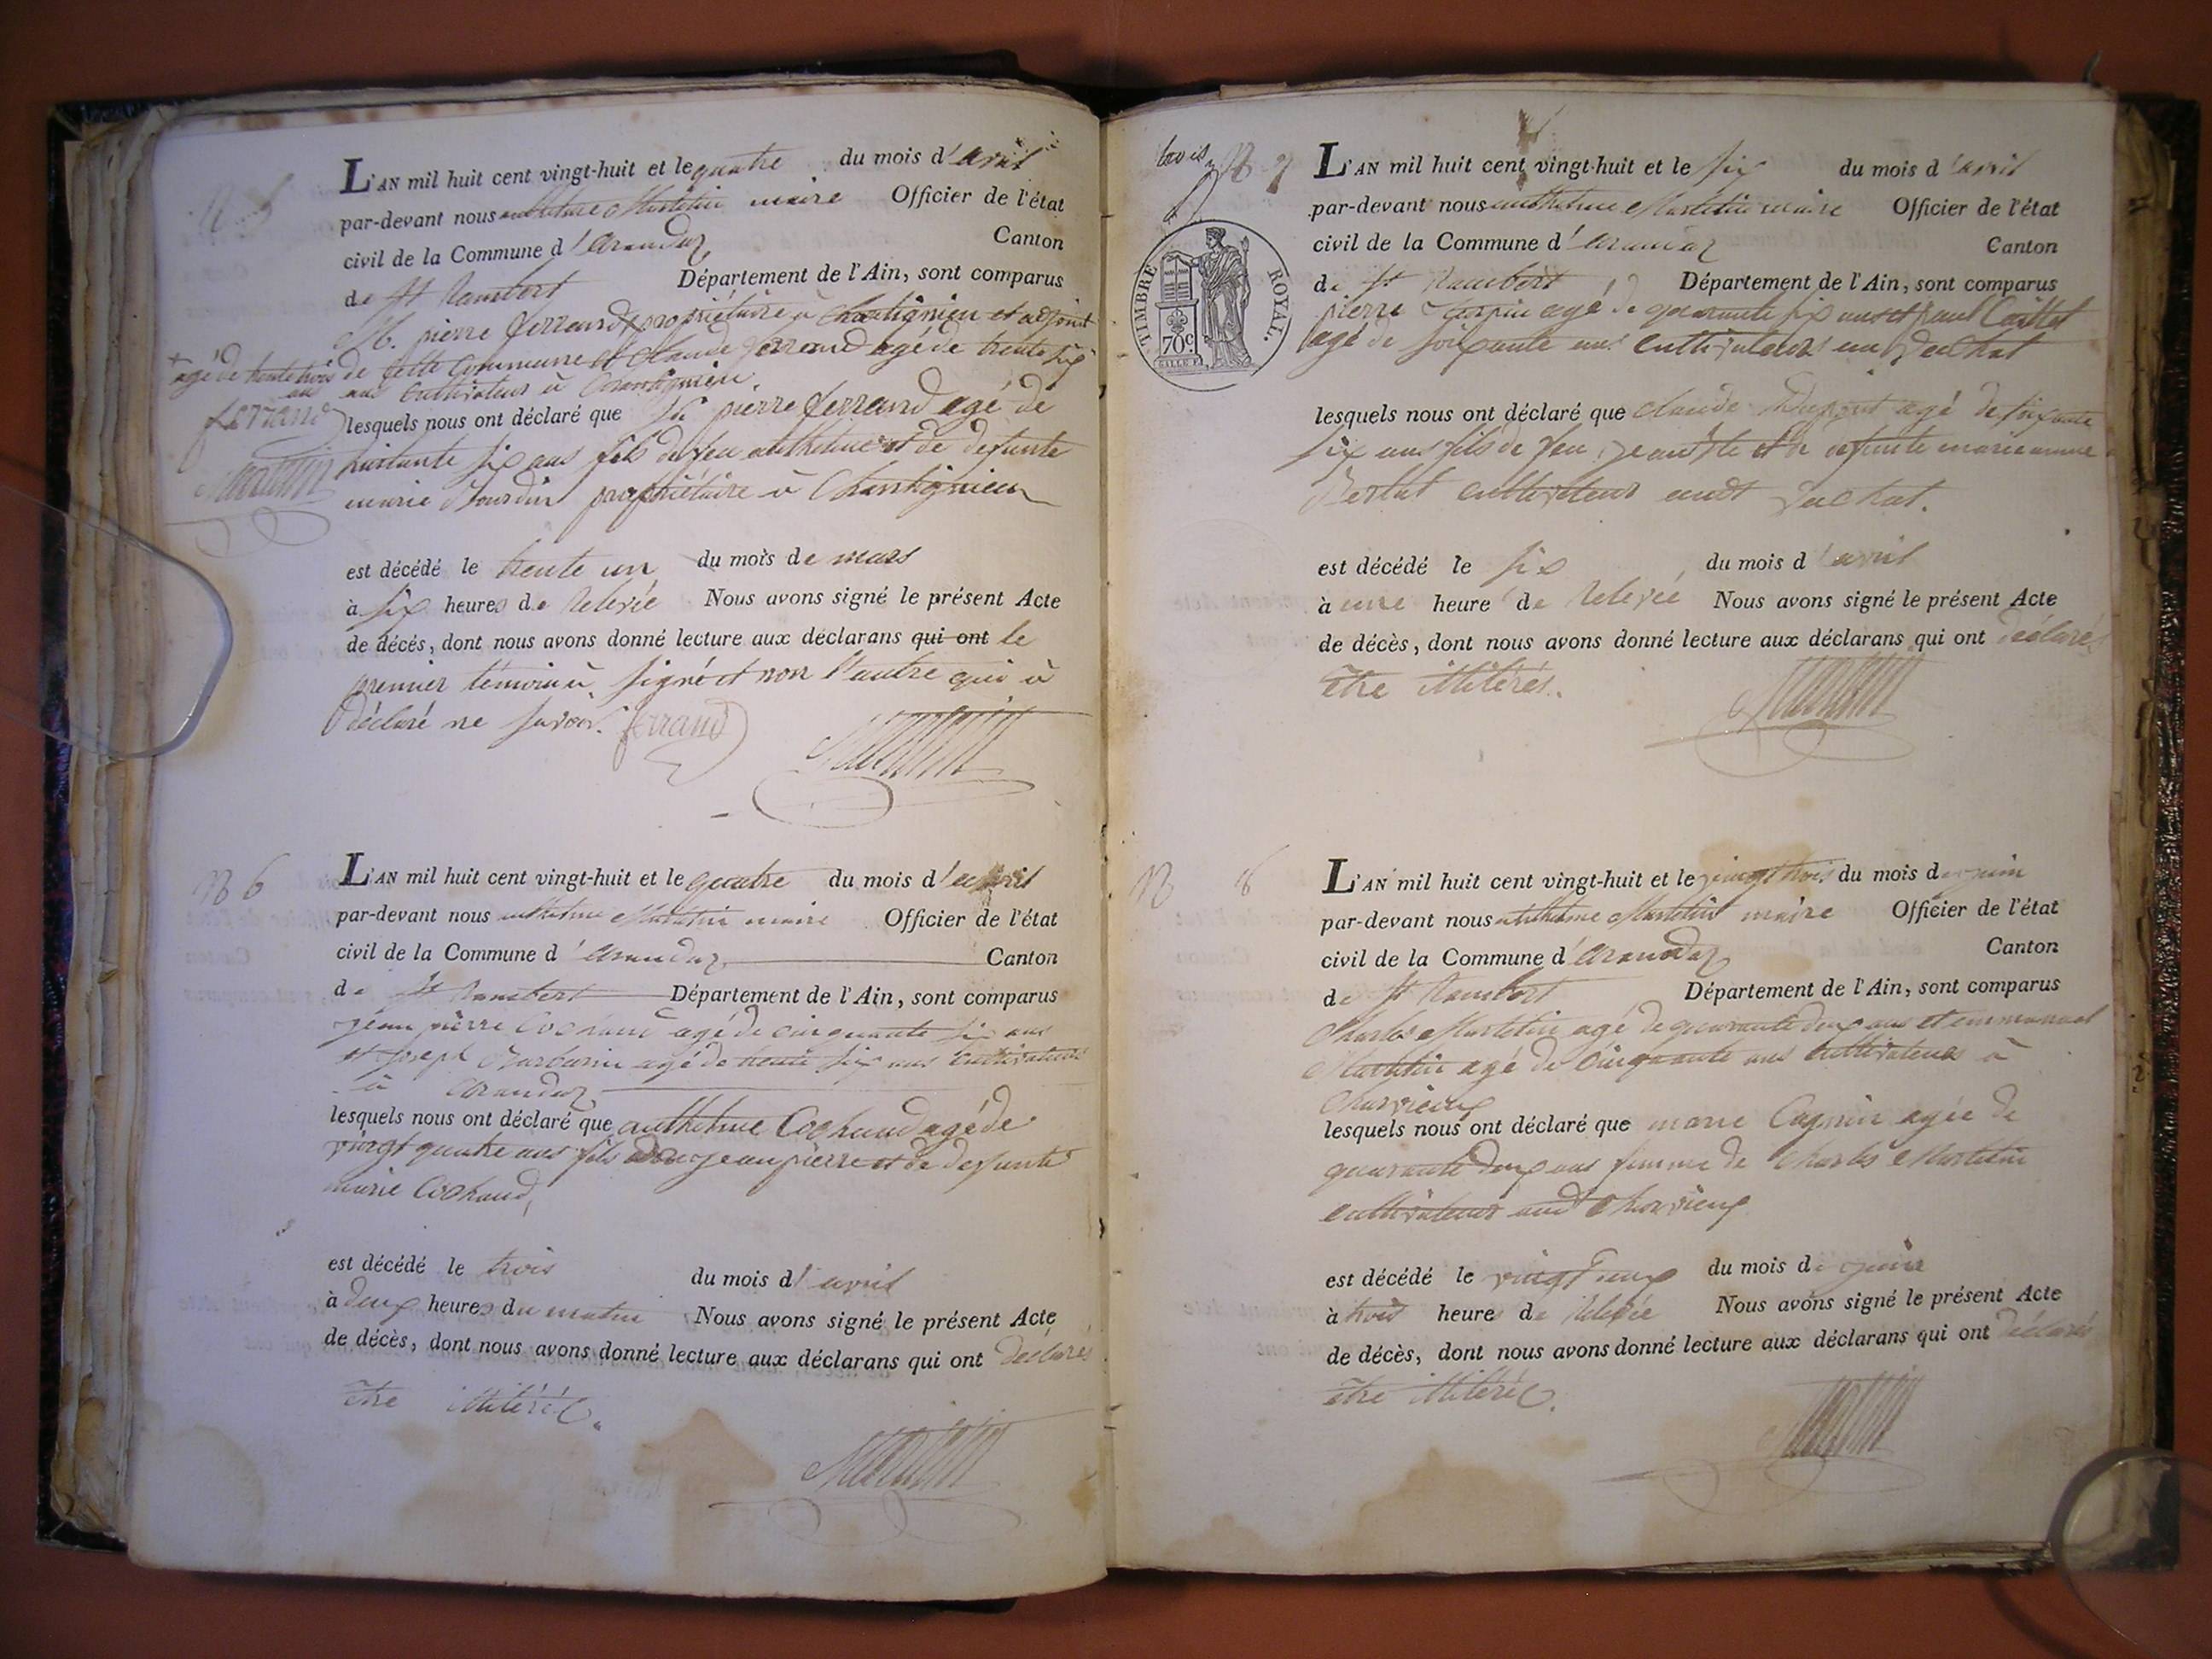 N 5
L'AN mil huit cent vingt-huit et le quatre du mois d'avril
par-devant nous anthelme Martelin maire Officier de l'état
civil de la Commune d'arandaz Canton
de St Rambert Département de l'Ain, sont comparus
M. pierre ferrand + propriétaire à Chantignieu et adjoint
+ agé de trente trois
de cette Commune et Claude ferrand agé de trente six
ans cultivateur à Chantignieu.
ferrand
lesquels nous ont déclaré que Sr pierre ferrand agé de
six ans fils de feu anthelme et de defunte
marie Bourdin propriétaire à Chantignieu
est décédé le trente un du mois de mars
à six heures de relevée Nous avons signé le présent Acte
de décés, dont nous avons donné lecture aux déclarans qui ont le
premier témoin à signé et non l'autre qui à
déclaré ne savoir. ferrand
N 6
L'AN mil huit cent vingt-huit et le quatre du mois d'avril
par-devant nous anthelme Martelin maire Officier de l'état
civil de la Commune d'arandaz Canton
de St Rambert Département de l'Ain, sont comparus
jean pierre Cochaud agé de cinquante six ans
et joseph Barbarin agé de trente six ans cultivateurs
à arandaz
lesquels nous ont déclaré que anthelme Cochaud agé de
vingt quatre ans fils jean pierre et de defunte
marie Cochaud,
est décédé le trois du mois d'avril
à deux heures du matin Nous avons signé le présent Acte
de décès, dont nous avons donné lecture aux déclarans qui ont déclarés
être illitérés.
trois
N 7
TIMBRE ROYAL.
70c
L'AN mil huit cent vingt-huit et le six du mois d'avril
par-devant nous anthelme Martelin maire Officier de l'état
civil de la Commune d'arandaz Canton
de St Rambert Département de l'Ain, sont comparus
pierre agé de quarante six ans et paul Caillet
agé de soixante ans cultivateurs au
lesquels nous ont déclaré que claude Dupont agé de soixante
six ans fils de feu jean Bte et de defunte marie anne
cultivateur audt
est décédé le six du mois d'avril
à une heure de relevée Nous avons signé le présent Acte
de décès, dont nous avons donné lecture aux déclarans qui ont déclarés
être illitérés.
N 8
L'AN mil huit cent vingt-huit et le vingt trois du mois de juin
par-devant nous anthelme Martelin maire Officier de l'état
civil de la Commune d'arandaz Canton
de St Rambert Département de l'Ain, sont comparus
Charles Martelin agé de quarante deux ans et emmanuel
Martelin agé de cinquante ans cultivateurs à
Charvieux
lesquels nous ont déclaré que marie Cagnin agée de
quarante deux ans femme de Charles Martelin
cultivateur audt Charvieux
est décédé le vingt deux du mois de juin
à trois heures de relevée Nous avons signé le présent Acte
de décès, dont nous avons donné lecture aux déclarans qui ont déclarés
être illitérés.